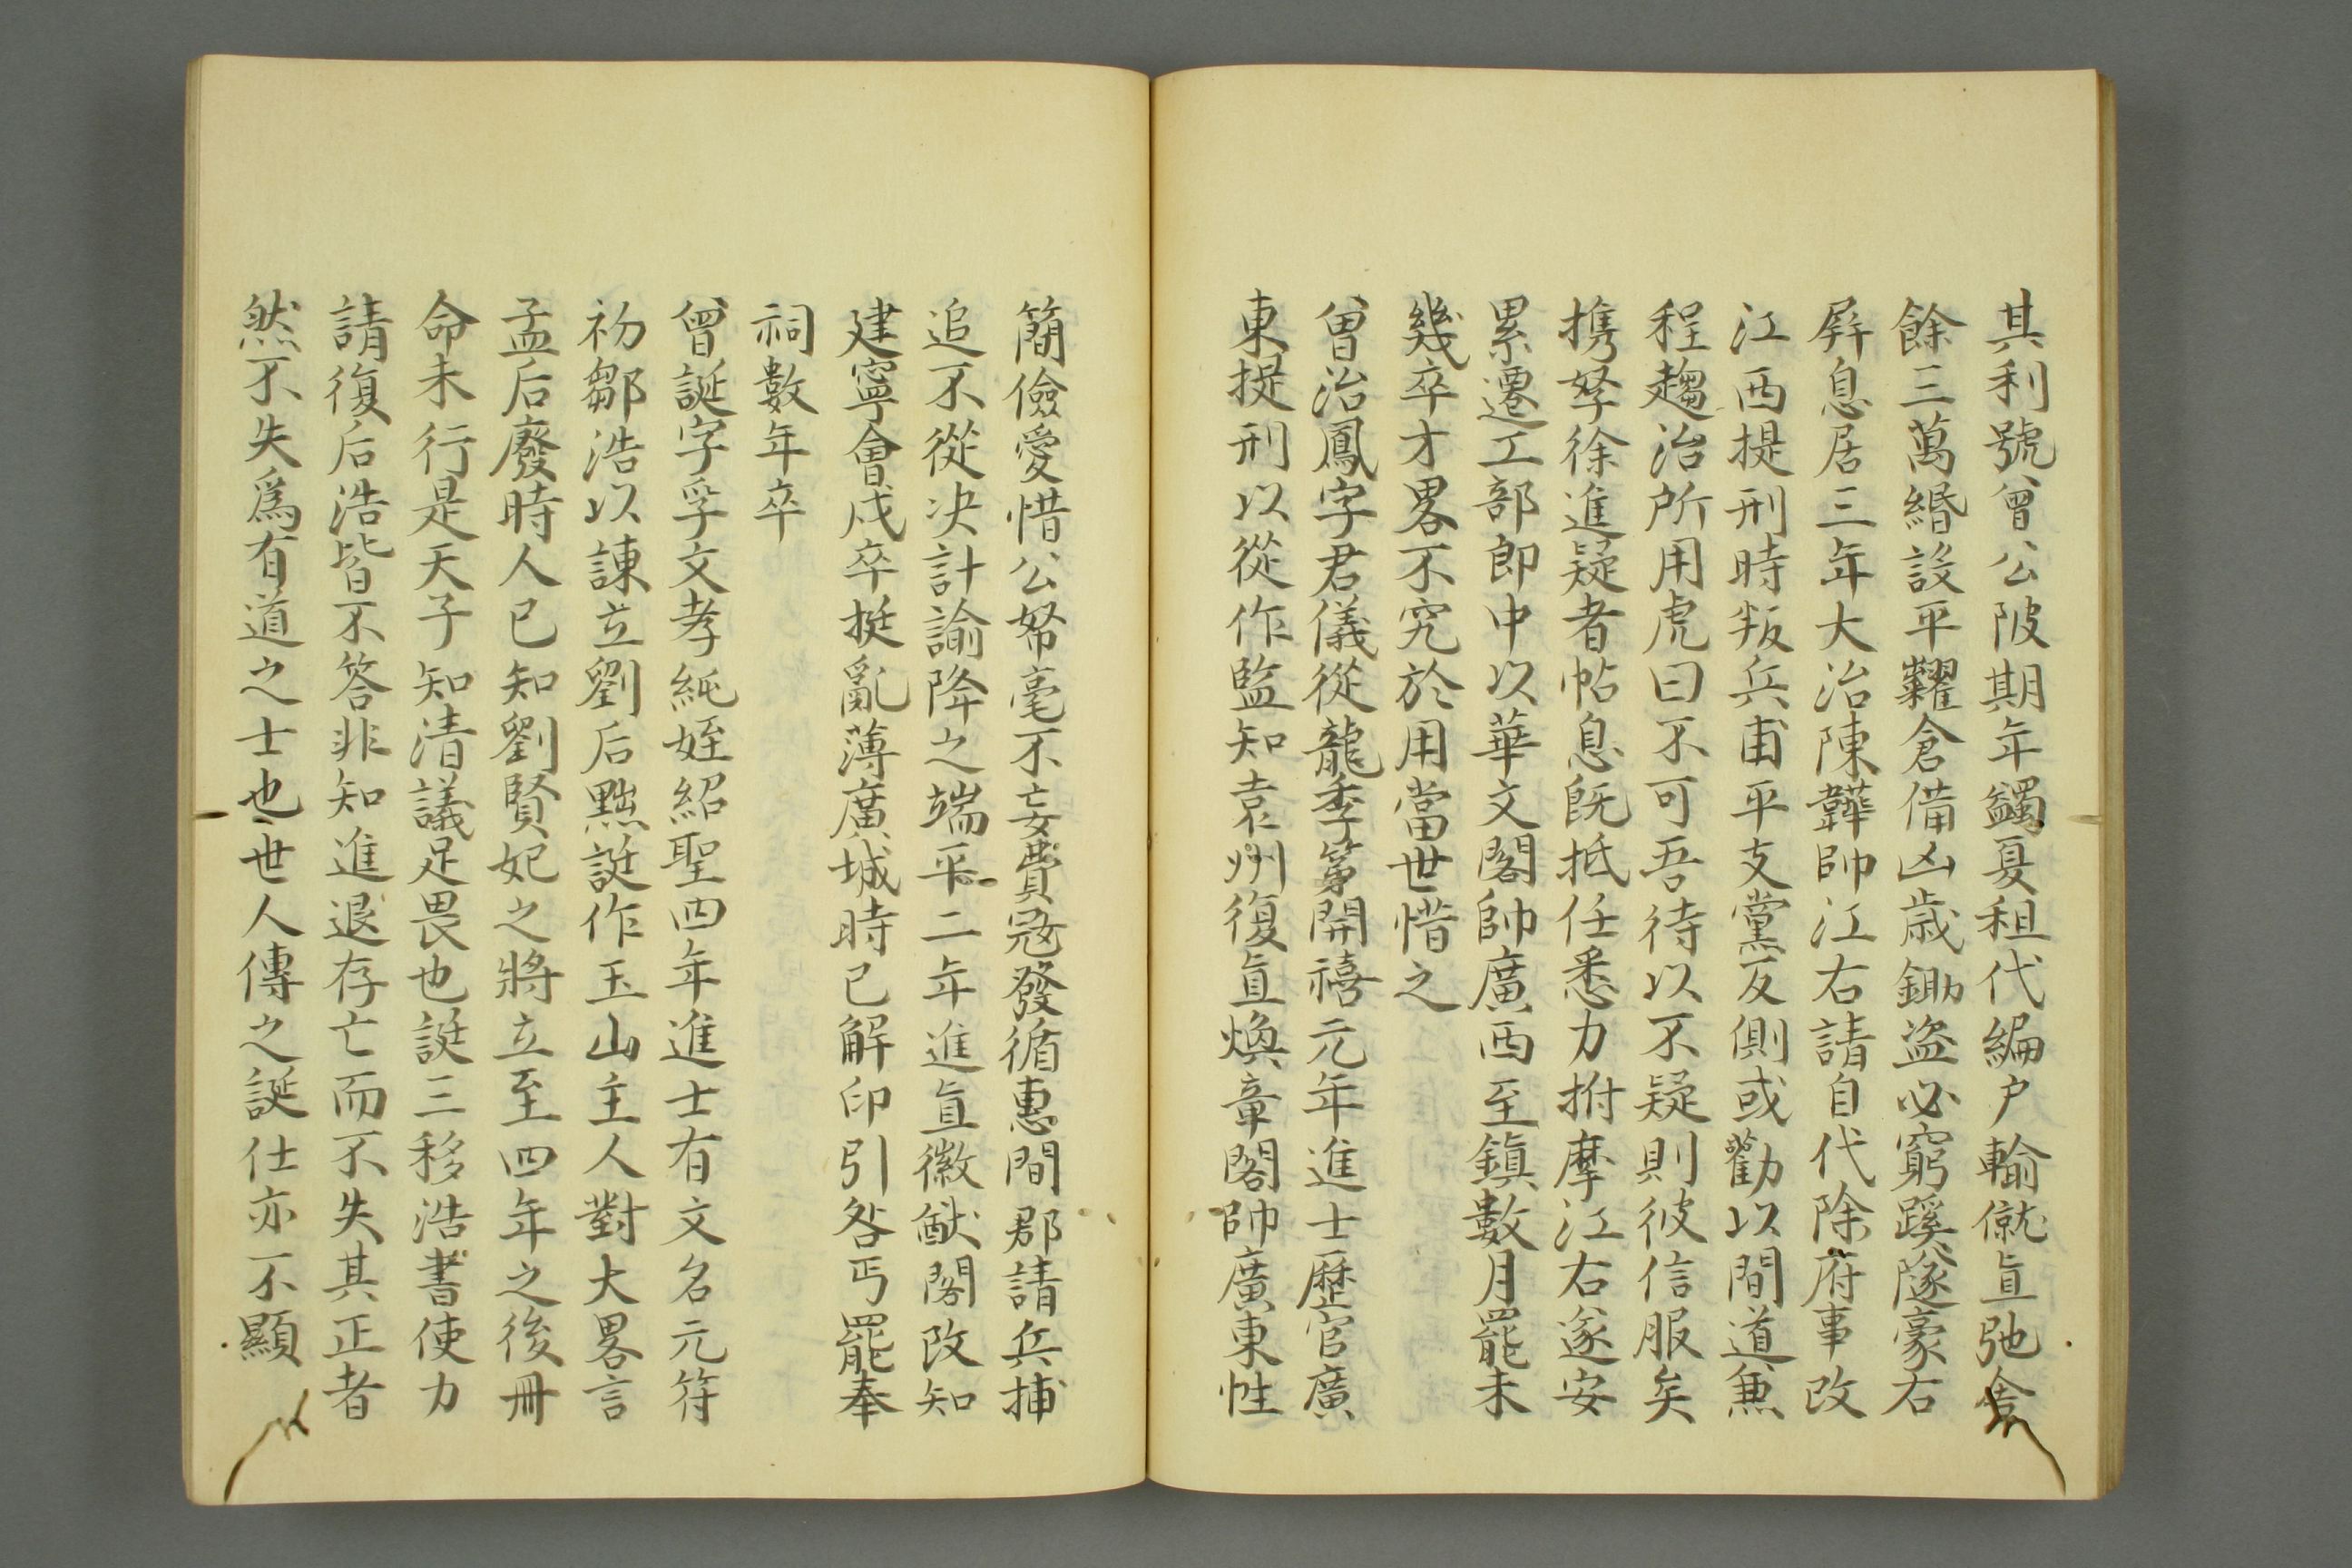 其利號曾公陂期年蠲夏租代編户輸僦直弛舍
餘三萬緡設平糶倉備凶歲鋤盗必窮蹊隧豪右
屏息居三年大治陳韡帥江右請自代除府事改
江西提刑時叛兵甫平支黨反側或勸以間道兼
程趨治所用虎曰不可吾待以不疑則彼信服矣
携孥徐進疑者帖息既抵任悉力拊摩江右遂安
累遷工部郎中以華文閣帥廣西至鎮數月罷未
幾卒才畧不究於用當世惜之
曾治鳳字君儀從龍季第開禧元年進士歷官廣
東提刑以從作監知袁州復直煥章閣帥廣東性
簡儉愛惜公帑毫不妄費冦發循惠間郡請兵捕
追不從决計諭降之端平二年進直徽猷閣改知
建寧會戍卒挺亂薄廣城時已解印引咎丐罷奉
祠數年卒
曾誕字孚文孝純姪紹聖四年進士有文名元符
初鄒浩以諫立劉后黜誕作玉山主人對大畧言
孟后廢時人已知劉賢妃之將立至四年之後冊
命未行是天子知清議足畏也誕三移浩書使力
請復后浩皆不答非知進退存亡而不失其正者
然不失爲有道之士也世人傳之誕仕亦不顯